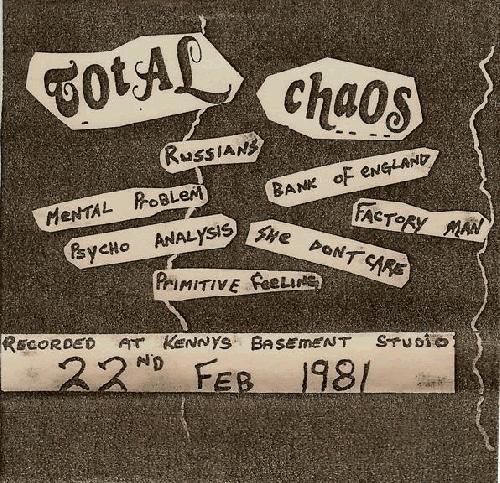 Total chaos
Russians
Bank of England
Mental Problem
Factory Man
Psycho Analysis
She Dont Care
Primitive Feeling
Recorded at Kennys Basement Studio
22ND Feb 1981